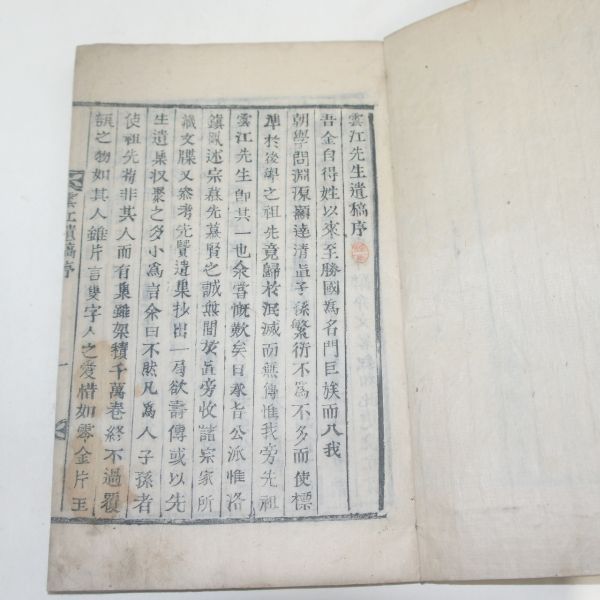 雲江先生遺稿序
吾金自得姓以來至勝國爲名門巨族而入我
朝學問淵源顯達清直子孫繁衍不爲不多而使標
準於後學之祖先竟歸於泯滅而無傳惟我旁先祖
雲江先生卽其一也余嘗慨歎矣日承旨公派惟洛
鎮夙述宗慕先慕賢之誠無間旁收諸宗家所
藏文牒又叅考先賢遺集抄出一局欲壽傳或以先
生遺集收聚之多小爲言余曰不然凡爲人子孫者
使祖先苟非其人而有集雖架積千萬卷終不過覆
瓿之物如其人雖片言隻字人之愛惜如零金片玉
雲江遺稿序
一